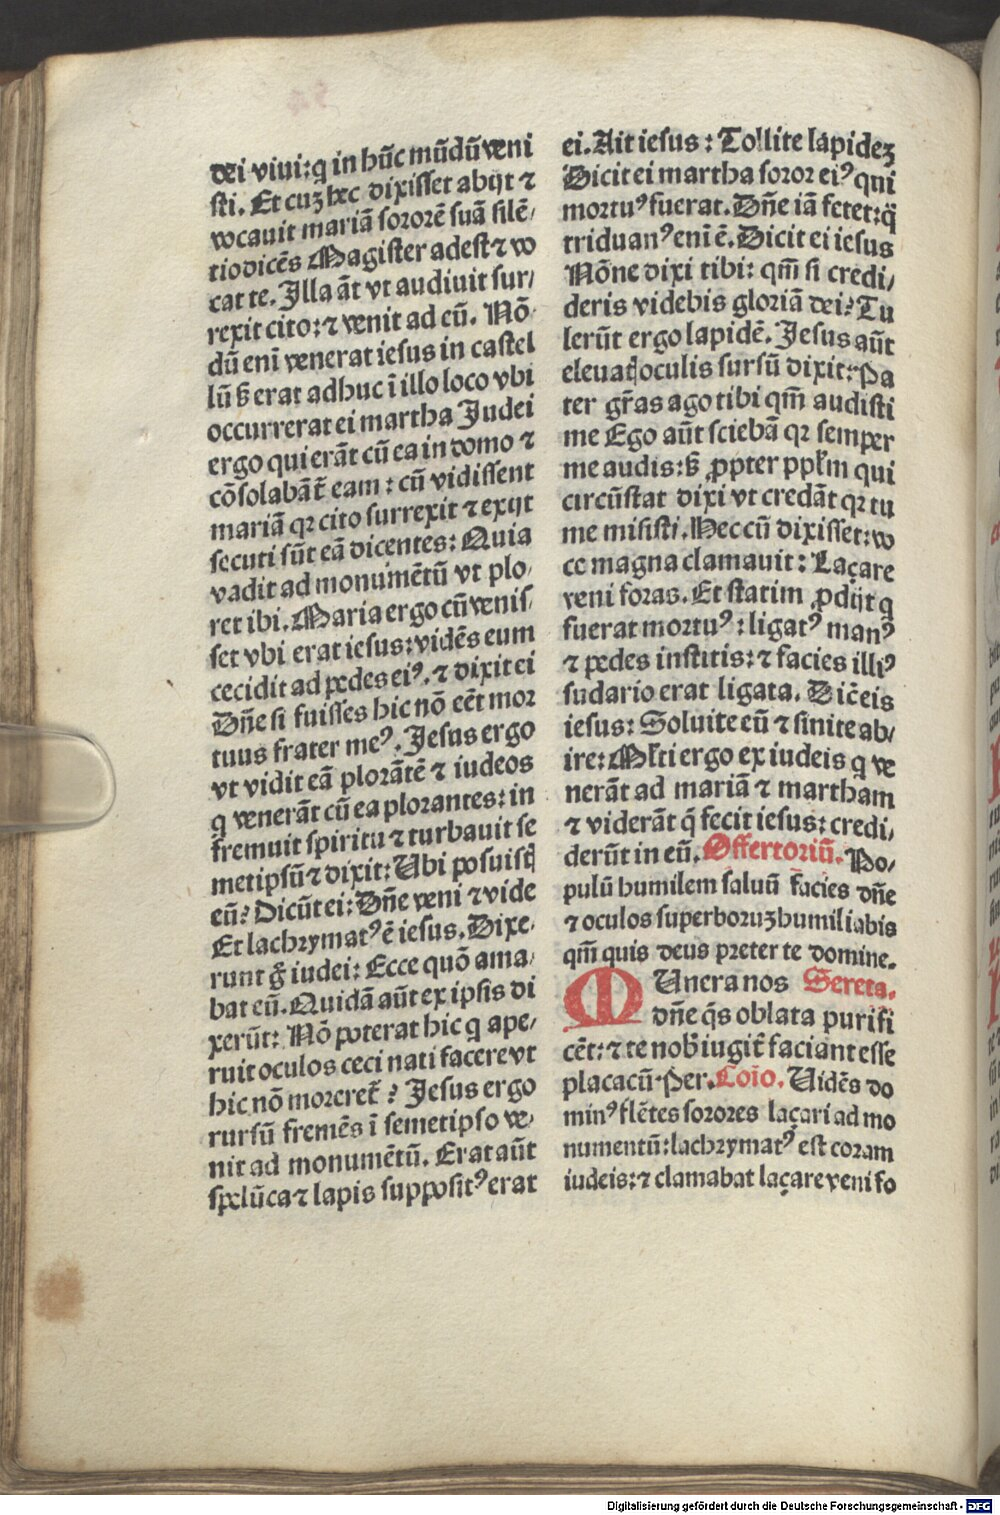 dei viui: q̃ in hũc mũdũ veni
sti. Et cuꝫ hec dixisset abijt ⁊
vocauit mariã sororẽ suã silẽ/
tio dicẽs Magister adest ⁊ vo
cat te. Illa ãt vt audiuit sur/
rexit cito: ⁊ venit ad eũ. Nõ-
dũ enĩ venerat iesus in castel
lũ sꝫ erat adhuc ĩ illo loco vbi
occurrerat ei martha Judei
ergo qui erãt cũ ea in domo ⁊
cõsolabãt̃ eam: cũ vidissent
mariã qꝛ cito surrexit ⁊ exijt
secuti sũt eã dicentes: Quia
vadit ad monumẽtũ vt plo/
ret ibi. Maria ergo cũ venis/
set vbi erat iesus: vidẽs eum
cecidit ad pedes eiꝰ. ⁊ dixit ei
Dñe si fuisses hic nõ eẽt mor
tuus frater meꝰ. Jesus ergo
vt vidit eã plorãtẽ ⁊ iudeos
q̃ venerãt cũ ea plorantes: in
fremuit spiritu ⁊ turbauit se
metipsũ ⁊ dixit: Ubi posuistꝭ
eũ? Dicũt ei: Dñe veni ⁊ vide
Et lachrymatꝰ ẽ iesus. Dixe/
runt g̃ iudei: Ecce quõ ama/
bat eũ. Quidã aũt ex ipsis di
xerũt: Nõ poterat hic q̃ ape/
ruit oculos ceci nati facere vt
hic nõ moreret̃? Jesus ergo
rursũ fremẽs ĩ semetipso ve/
nit ad monumẽtũ. Erat aũt
spelũca ⁊ lapis suppositꝰ erat
ei. Ait iesus: Tollite lapideꝫ
Dicit ei martha soror eiꝰ qui
mortuꝰ fuerat. Dñe iã fetet: q̃
triduanꝰ enĩ ẽ. Dicit ei iesus
Nõne dixi tibi: qm̃ si credi/
deris videbis gloriã dei? Tu
lerũt ergo lapidẽ. Jesus aũt
eleuatꝭ oculis sursũ dixit: Pa
ter gr̃as ago tibi qm̃ audisti
me Ego aũt sciebã qꝛ semper
me audis: sꝫ ꝓpter ppl̃m qui
circũstat dixi vt credãt qꝛ tu
me misisti. Hec cũ dixisset: vo
ce magna clamauit: Laçare
veni foras. Et statim ꝓdijt q̃
fuerat mortuꝰ: ligatꝰ manꝰ
⁊ pedes institis: ⁊ facies illiꝰ
sudario erat ligata. Dic̃ eis
iesus: Soluite eũ ⁊ sinite ab/
ire: Ml̃ti ergo ex iudeis q̃ ve
nerãt ad mariã ⁊ martham
⁊ viderãt q̃ fecit iesus: credi/
derũt in eũ. Offertoriũ. Po/
pulũ humilem saluũ facies dñe
⁊ oculos superboruꝫ humiliabis
qm̃ quis deus preter te domine.
MUnera nos Secreta.
dñe q̃s oblata purifi
cẽt: ⁊ te nob̃ iugit̃ faciant esse
placacũ. Per. Coĩo. Uidẽs do
minꝰ flẽtes sorores laçari ad mo
numentũ: lachrymatꝰ est coram
iudeis: ⁊ clamabat laçare veni fo
Digitalisierung gefördert durch die Deutsche Forschungsgemeinschaft - DFG